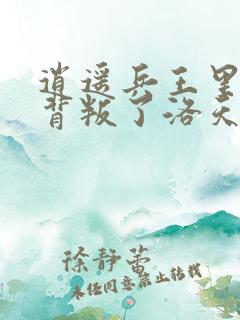 逍遥兵王里
背叛了洛天
徐静蕾
未经同意禁止转载